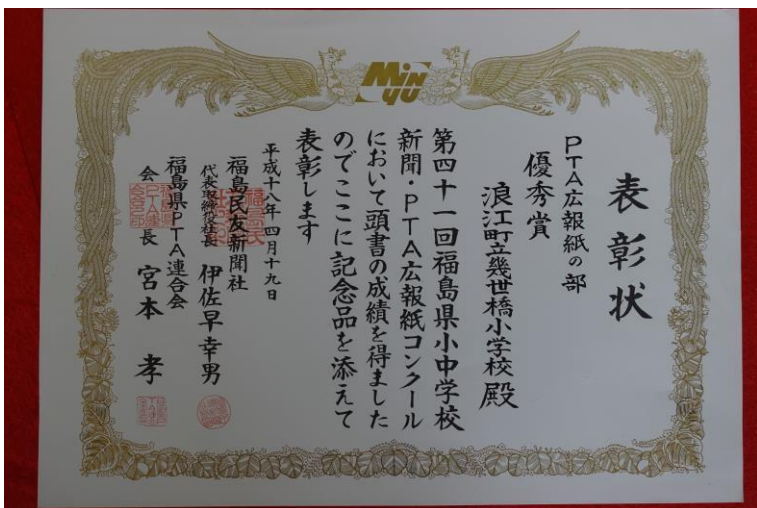 MiN
yu
表彰状
PTA広報紙の部
優秀賞
浪江町立幾世橋小学校 殿
第四十一回福島県小中学校
新聞・PTA広報紙コンクール
において頭書の成績を得ました
のでここに記念品を添えて
表彰します
平成十八年四月十九日
福島民友新聞社
代表取締役社長 伊佐早幸男
福島県PTA連合会
会長 宮本 孝